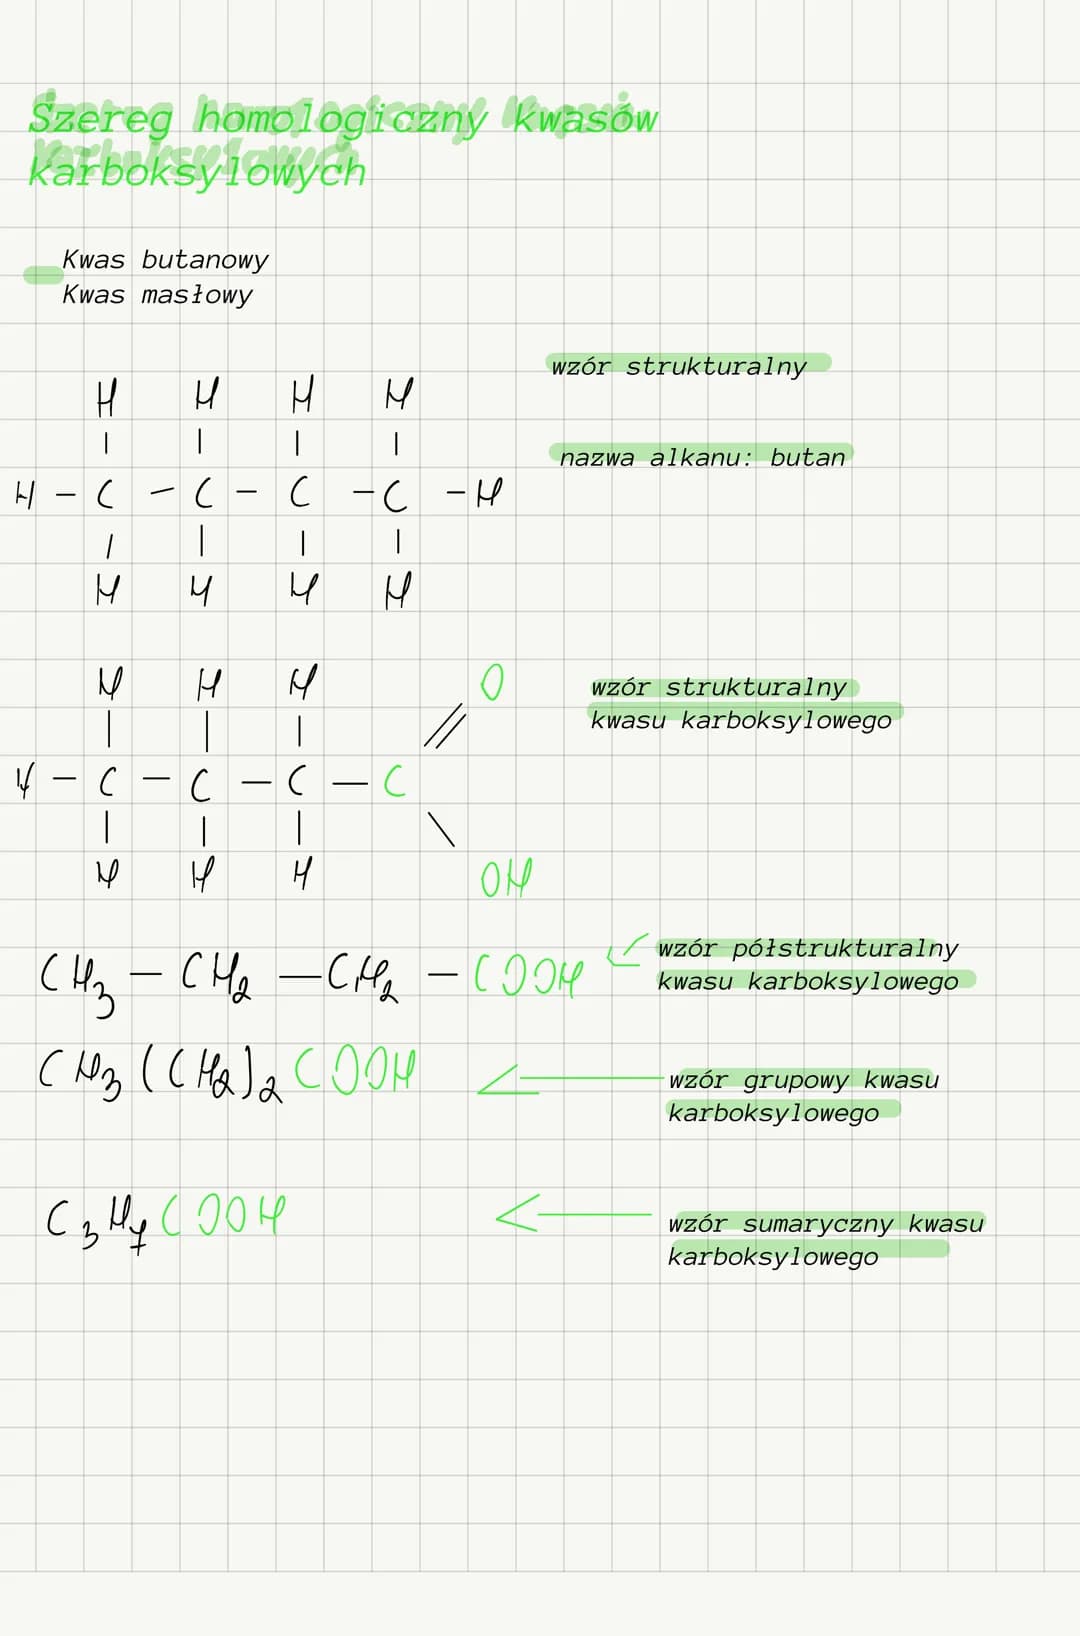 Szereg homologiczny kwasów
karboksylowych
Kwas butanowy
Kwas masłowy
wzór strukturalny
H H H H
nazwa alkanu: butan
H - C - C - C - C - H
H H H H
H H H O
wzór strukturalny
kwasu karboksylowego
H - C - C - C - C
H H H OH
CH₃ - CH₂ - CH₂ - COOH
wzór półstrukturalny
kwasu karboksylowego
CH₃(CH₂)₂COOH
wzór grupowy kwasu
karboksylowego
C₃H₇COOH
wzór sumaryczny kwasu
karboksylowego